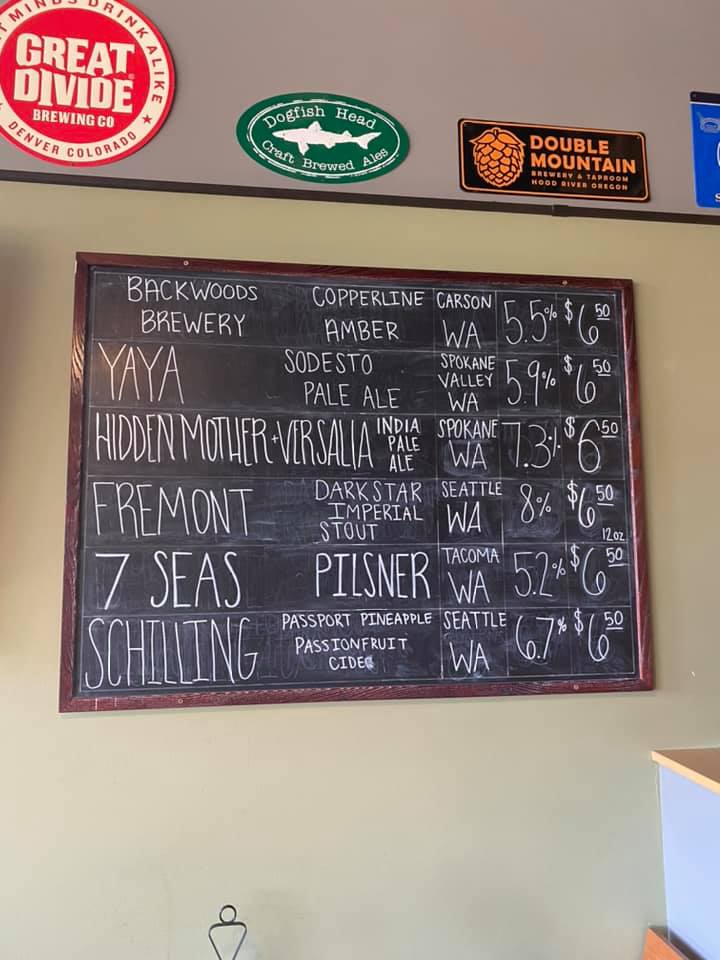 GREAT MINDS DRINK ALIKE ★
GREAT
DIVIDE
BREWING CO
DENVER COLORADO
Dogfish Head
Craft Brewed Ales
DOUBLE
MOUNTAIN
BREWERY & TAPROOM
HOOD RIVER OREGON
BACKWOODS BREWERY COPPERLINE AMBER CARSON WA 5.5% $6.50
YAYA SODESTO PALE ALE SPOKANE VALLEY WA 5.9% $6.50
HIDDEN MOTHER + VERSALIA INDIA PALE ALE SPOKANE WA 7.3% $6.50
FREMONT DARK STAR IMPERIAL STOUT SEATTLE WA 8% $6.50 12oz
7 SEAS PILSNER TACOMA WA 5.2% $6.50
SCHILLING PASSPORT PINEAPPLE PASSIONFRUIT CIDER SEATTLE WA 6.7% $6.50